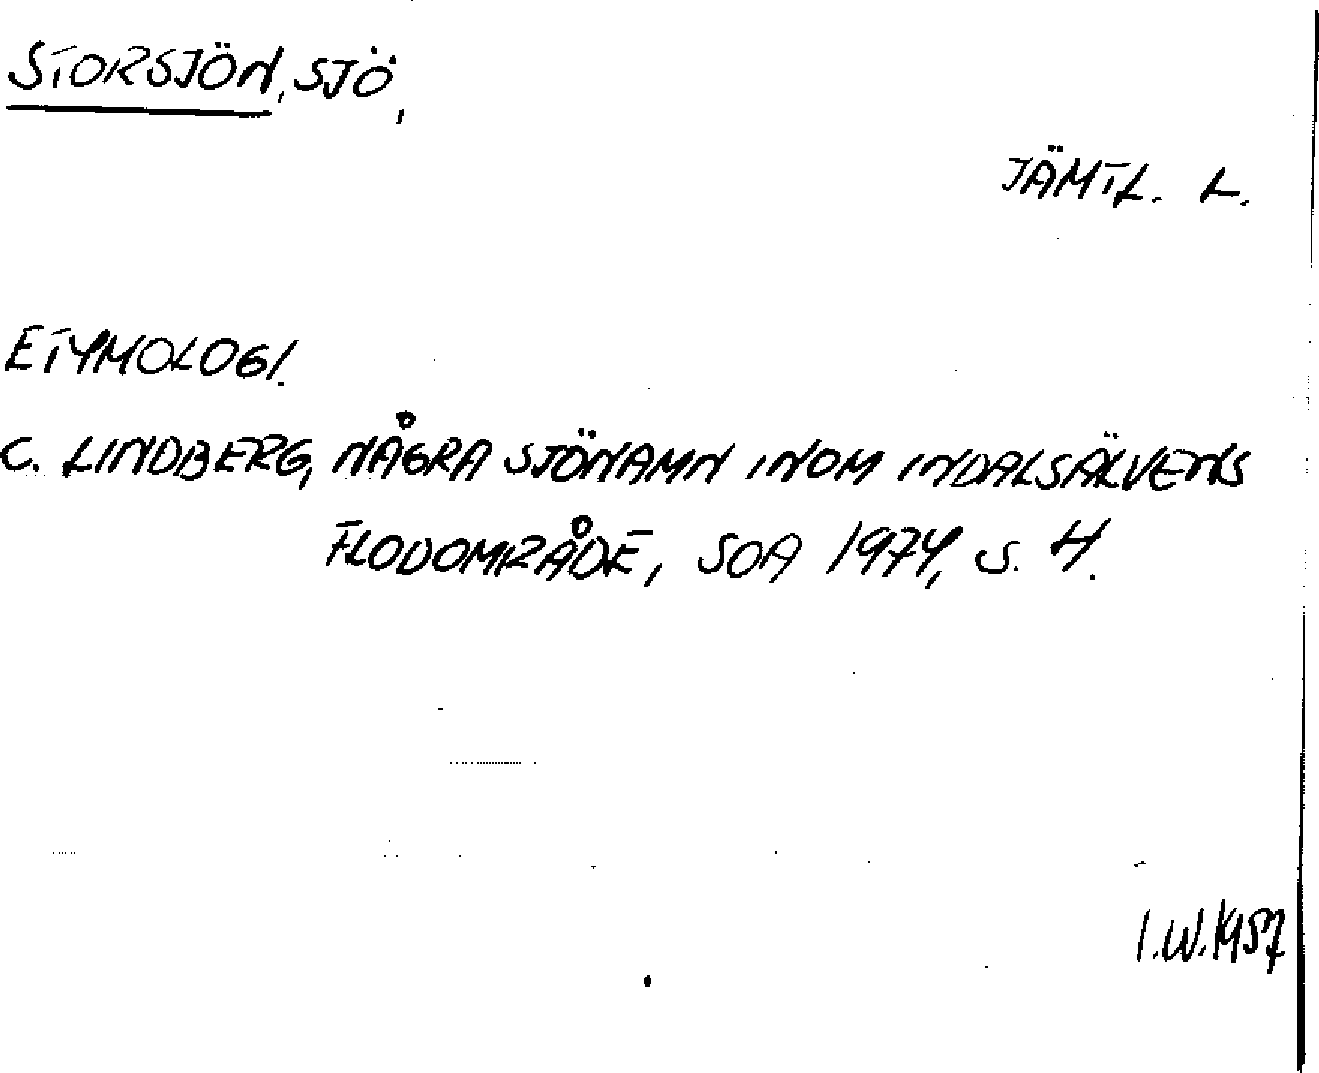 STORSJÖN, SJÖ,
JÄMTL. L.
ETYMOLOGI.
C. LINDBERG, NÅGRA SJÖNAMN INOM INDALSÄLVENS
FLODOMRÅDE, SOA 1974, S. 4.
I.W. 1957